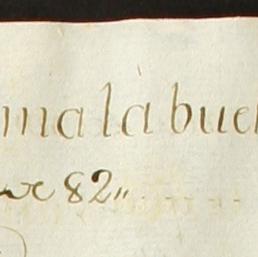 ma là bue
82"